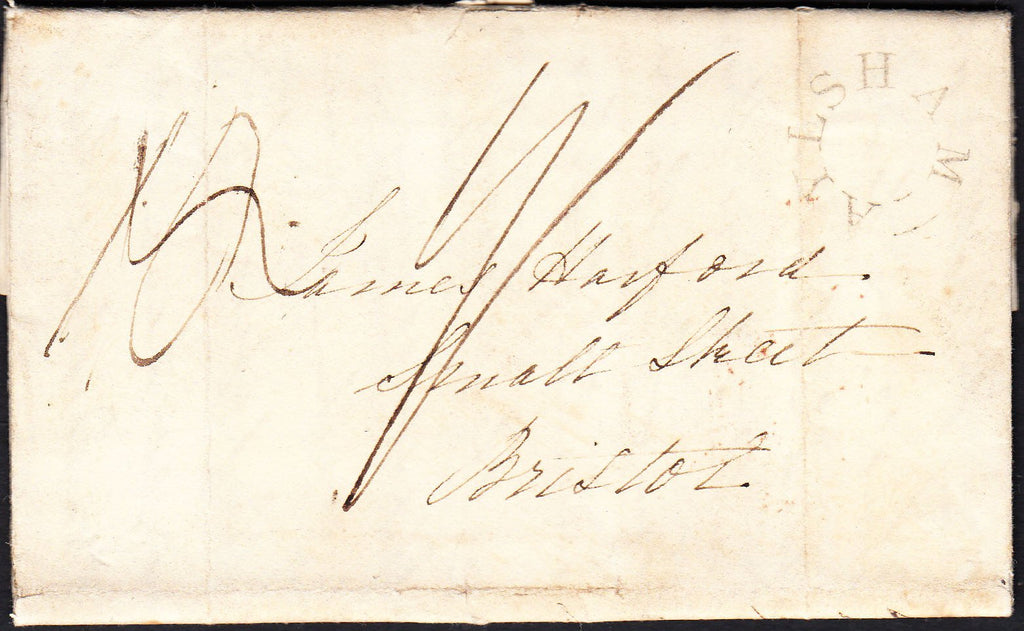 AYLSHAM
James Harford.
Small Street
Bristol